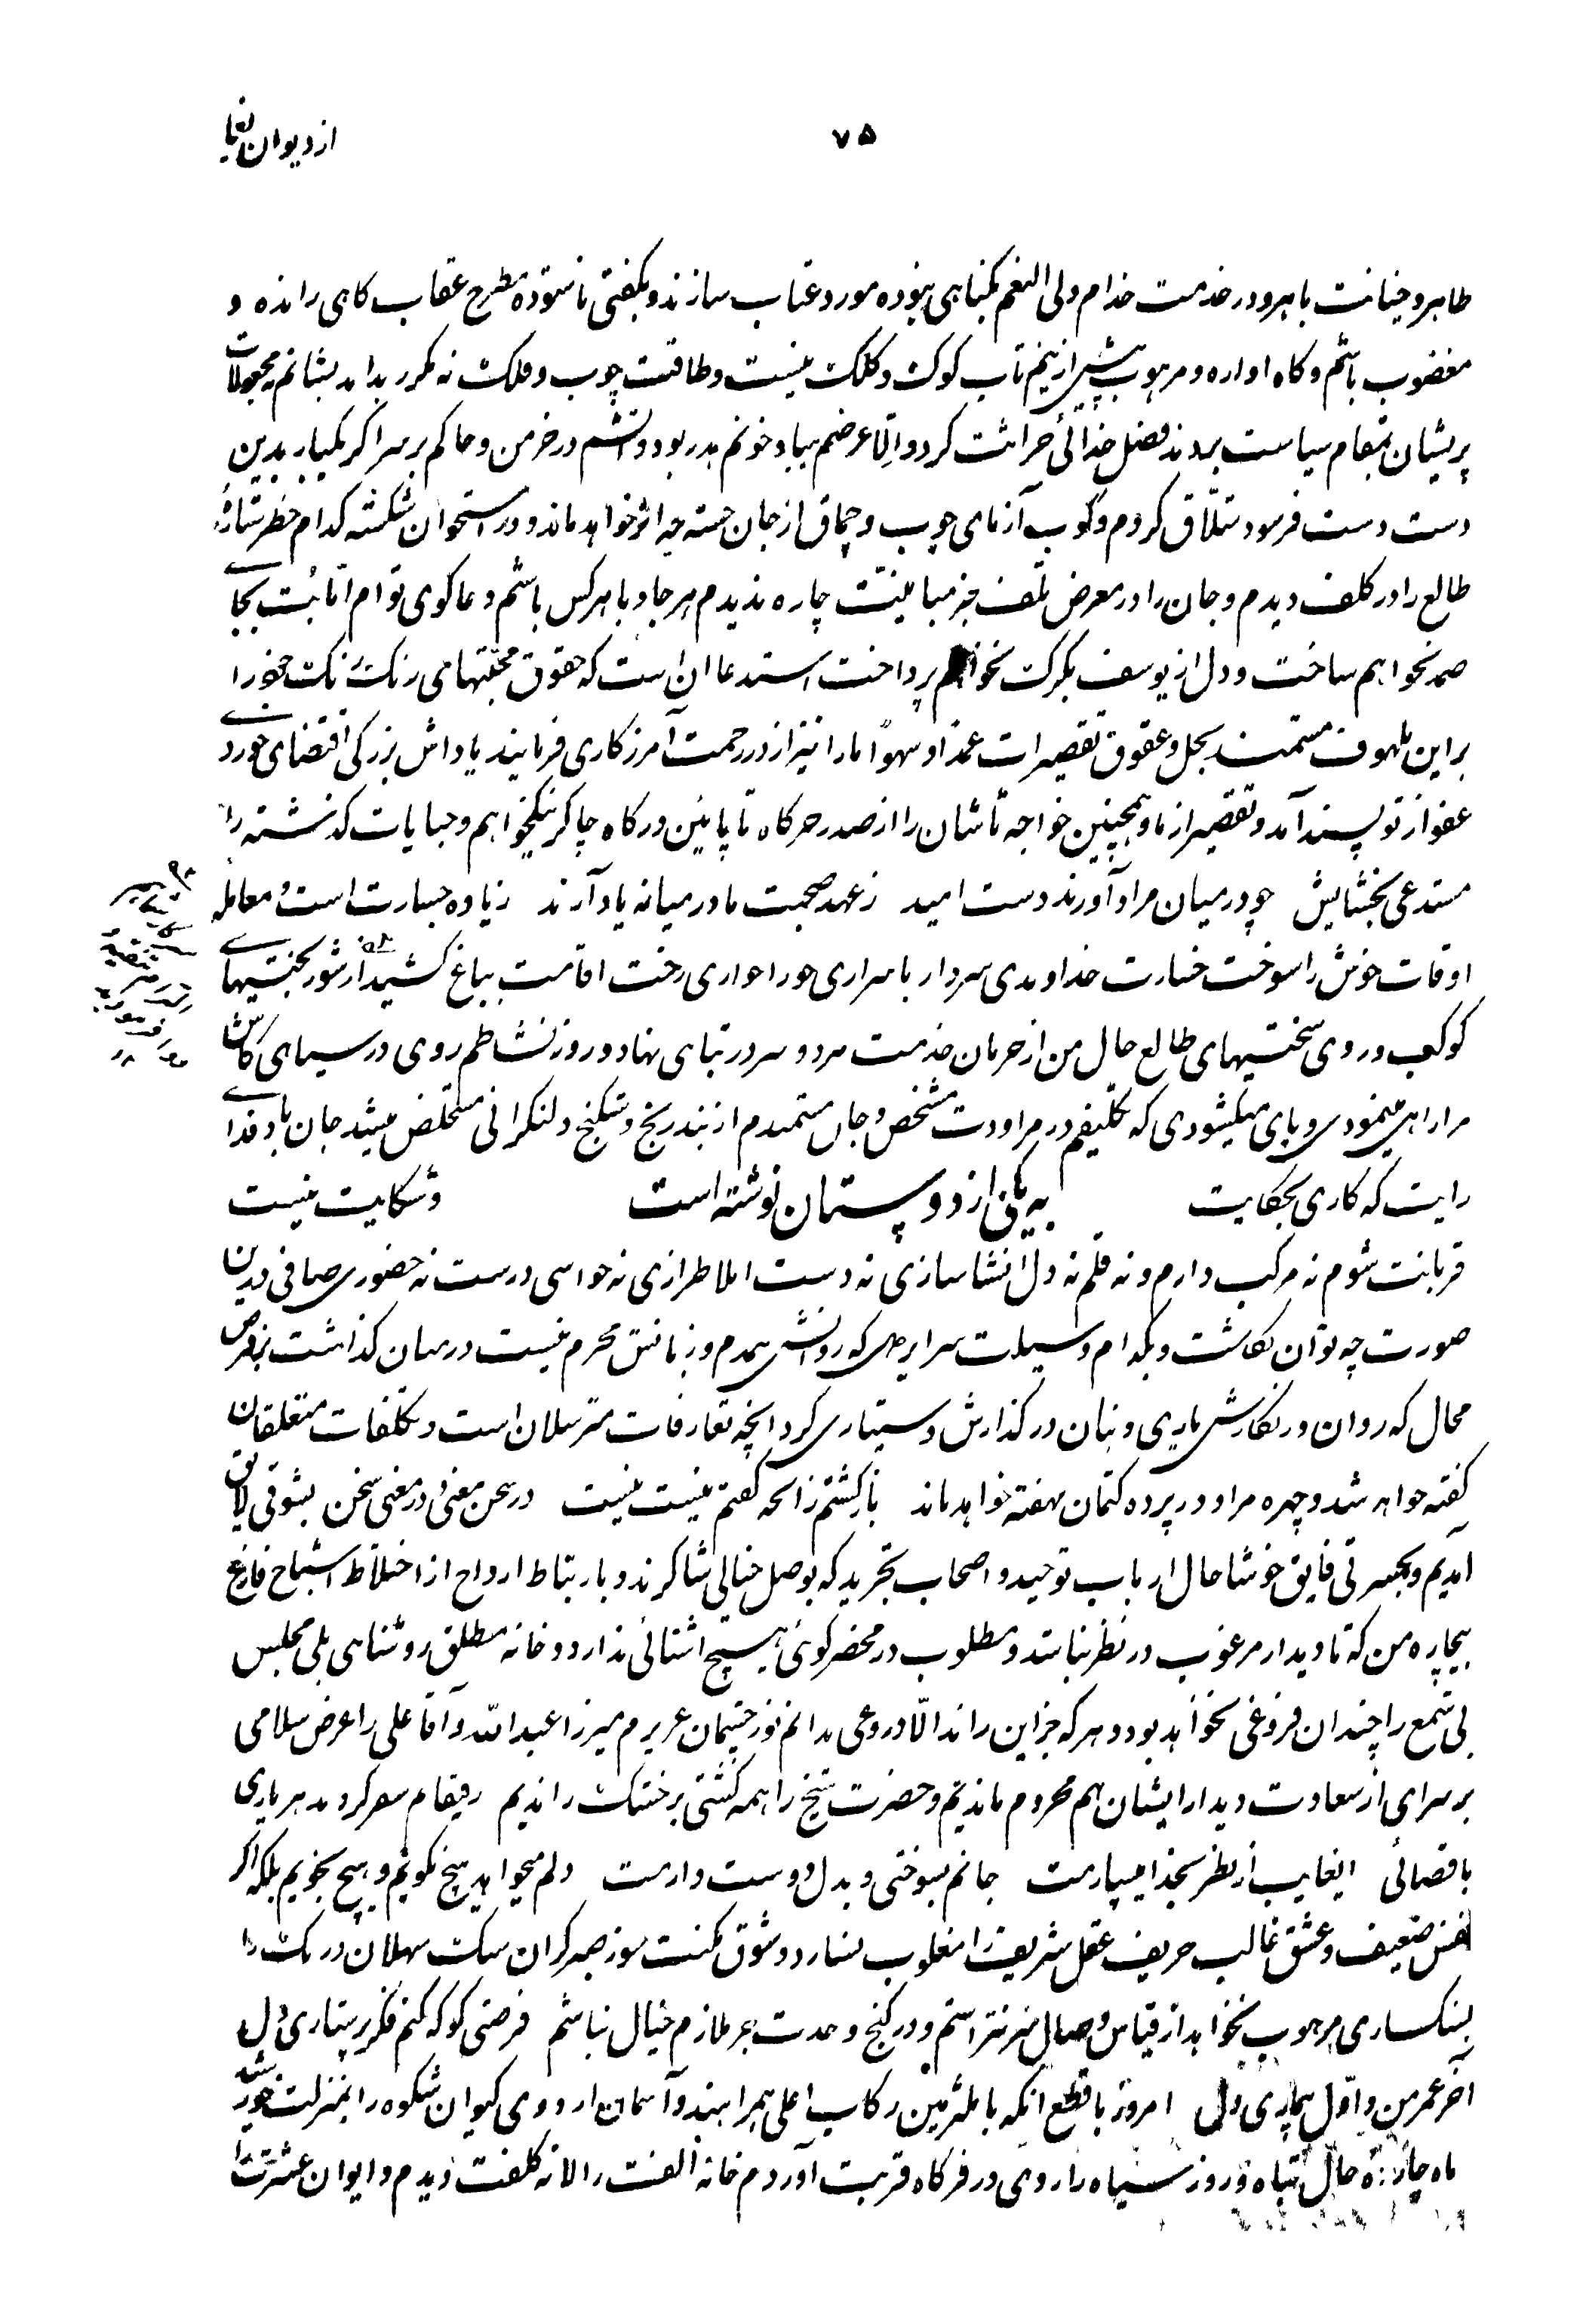 ۷۵
از دیوان یغما
ظاهر و خیانت باهر و در خدمت خدام ولی النعم بگناهی نبوده مورد عتاب سازند و بگفتی ناستوده مطرح عقاب گاهی رانده و
مغضوب باشم و گاه آواره و مرهوب بیش از نیم تاب کوک و کلک نیست و طاقت چوب و فلک نه مکرر
پریشان بمقام سیاست بردند فضل خدائی حراثت کرد و الا عرضم بباد و خونم هدر بود و آتشم در خرمن و خاکم بر سر اگر یکبار بدین
دست دست فرسود شلاق گردم و کوب آزمای چوب و چماق از جان خسته چه اثر خواهد ماند و در استخوان شکسته کدام خطر ستاره
طالع را در کلف دیدم و جان را در معرض تلف جز مباینت چاره ندیدم هر جا و با هر کس باشم دعاگوی توام اما بت بجای
صمد نخواهم ساخت و دل از یوسف بگرگ نخواهم پرداخت استدعا آن است که حقوق محبتهای رنگ رنگ خود را
بر این ملهوف مستمند بحل و عقوق تقصیرات عمدا و سهوا ما را نیز از در رحمت آمرزگاری فرمایند پاداش بزرگی اقتضای خوردی
عفو از تو پسند آمد و تقصیر از ما و همچنین خواجه تاشان را از صدر خرگاه تا پایین درگاه چاکر نیکخواهم و جنایات گذشته را
مستدعی بخشایش چو در میان مراد آورند دست امید ز عهد صحبت ما در میانه یاد آرند زیاده جسارت است معامله
اوقات خوش را سوخت خسارت خداوندی سردار با سراری حورا حواری رخت اقامت بباغ کشید از شوربختیهای
کوکب و روی سختیهای طالع حال من از حرمان خدمت سرد و سر در تباهی نهاد و روز نشاطم روی در سیاهی کاش
مرا راهی مینمودی و پای میگشودی که تکلیفم در مراودت مشخص و جان مستمندم از بند رنج و شکنج دلنگرانی مستخلص میشد جان بادفدای
رایت که کاری بحکایت
و شکایت نیست
به یکی از دوستان نوشته است
قربانت شوم نه مرکب دارم و نه قلم نه دل انشا سازی نه دست املا طرازی نه حواسی درست نه حضوری صافی بدین
صورت چه توان نگاشت و بکدام وسیلت سرایری که روانش همدم و زبانش محرم نیست در میان گذاشت بفرض
محال که روان در نگارش یاری و بنان در گذارش دستیاری کرد آنچه تعارفات مترسلان است و تکلفات متعلقان
گفته خواهد شد و چهره مراد در پرده کتمان نهفته خواهد ماند بازگشتم زانچه گفتم نیست نیست در سخن معنی و در معنی سخن بشوقی لایق
آمدیم و بحسرتی فایق خوشا حال ارباب توحید و اصحاب تجرید که بوصل خیالی شاکرند و بارتباط ارواح از اختلاط اشباح فارغ
بیچاره من که تا دیدار مرغوب در نظر نباشد و مطلوب در محضر گوئی هیچ آشنائی ندارد و خانه مطلق روشناهی بلی مجلس
بی شمع را چندان فروغی نخواهد بود و هر که جز این راند الا دروغی ندانم نور چشمان عزیزم میرزا عبدالله و آقا علی را عرض سلامی
بر سرای از سعادت دیدار ایشان هم محروم ماندیم و حضرت شیخ را همه کشتی بر خشک راندیم رفیقام سفر کردند هر یاری
باقصائی ای غایب از نظر بخدا میسپارمت جانم بسوختی و بدل دوست دارمت دلم میخواهد هیچ نگویم و هیچ نجویم بلکه اگر
نفس ضعیف و عشق غالب حریف عقل شریف را مغلوب نسازد و شوق تمکنت سوز صبر گران سنگ سهلان درنگ را
بسنکساری مرهوب نخواهد از قیاس وصال نیز نتراسم و در کنج وحدت جز ملازم خیال نباشم فرصتی کو که کنم فکر پرستاری دل
آخر عمر من و اول بیماری دل امروز با قطع آنکه با ملتزمین رکاب اعلی همراهند و آسمان اردوی کیوان شکوه را بمنزلت خورشید
ماه چاره حال تباه و روز سیاه را روی در فرگاه قربت آوردم خانه الفت را لانه کلفت دیدم و ایوان عشرت را